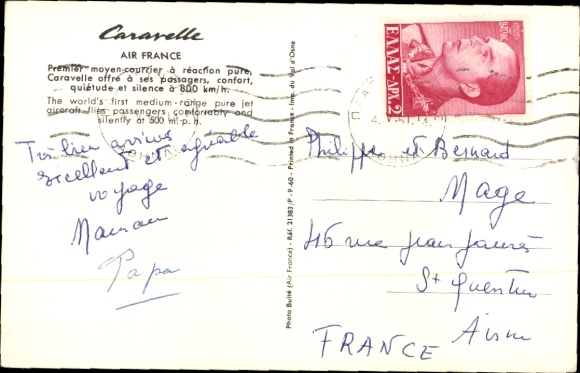 Caravelle
AIR FRANCE
Premier moyen-courrier à réaction pure,
Caravelle offre à ses passagers, confort,
quiétude et silence à 800 km/h.
The world's first medium-range pure jet
aircraft flies passengers comfortably and
silently at 500 m. p. h.
Très bien arrivés
excellent et agréable
voyage
Maman
Papa
Photo Bulté (Air France) - Réf. 21383/P - 9-60 - Printed in France - Imp. du Val d'Osne
ΕΛΛΑΣ-ΔΡΧ. 2
Philippe et Bernard
Mage
46 rue Jean Jaurès
St Quentin
Aisne
FRANCE